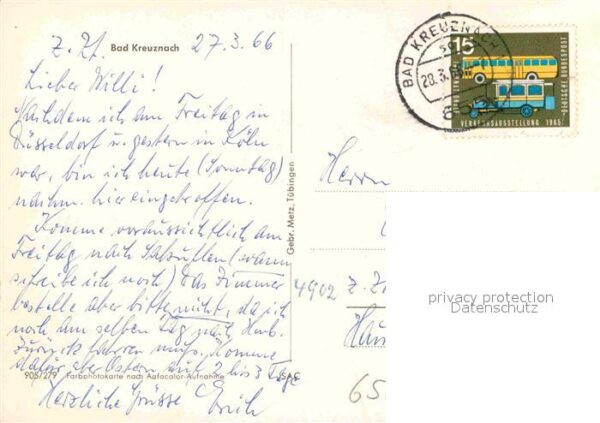 z. Zt. Bad Kreuznach 27.3.66
Lieber Willi!
Nachdem ich am Freitag in
Düsseldorf u. gestern in Köln
war, bin ich heute (Sonntag)
nachm. hier eingetroffen.
Komme voraussichtlich am
Freitag nach Salzuflen (wann
schreibe ich noch) Das Zimmer
bestelle aber bitte nicht, da ich
noch am selben Tag nach Hbg.
zurückfahren muss. Komme
dafür über Ostern mit 2 bis 3 Tage
Herzliche Grüsse Erich
905/279 Farbphotokarte nach Agfacolor-Aufnahme ISAC
Gebr. Metz, Tübingen
BAD KREUZNACH
28.3.66
15
DEUTSCHE BUNDESPOST
VERKEHRSAUSSTELLUNG 1965
Herrn
4902 z. Zt.
Haus
65
privacy protection
Datenschutz